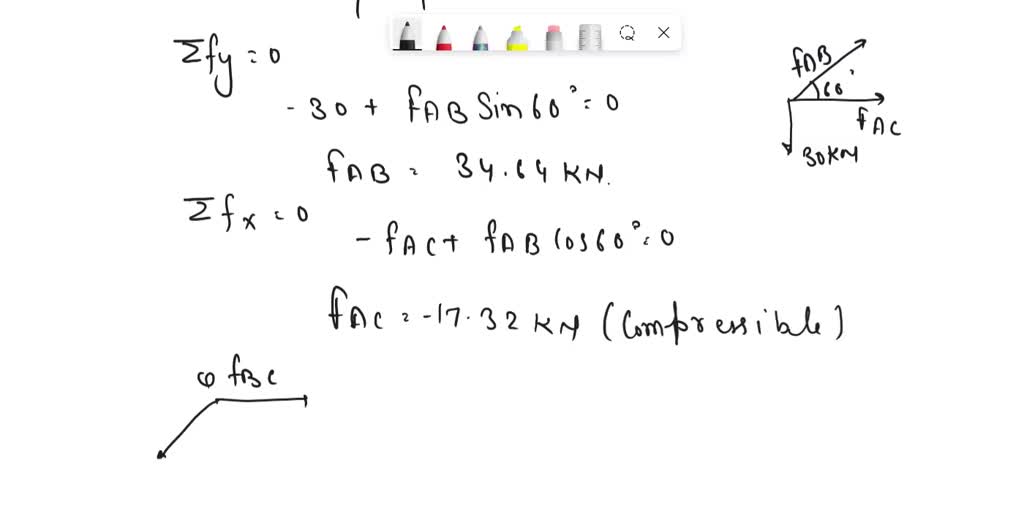 Σfy = 0
- 30 + fAB Sin 60° = 0
fAB = 34.64 KN.
Σfx = 0
- fAC + fAB Cos 60° = 0
fAC = -17.32 KN (Compressible)
fBC
fAB
60°
fAC
30KN